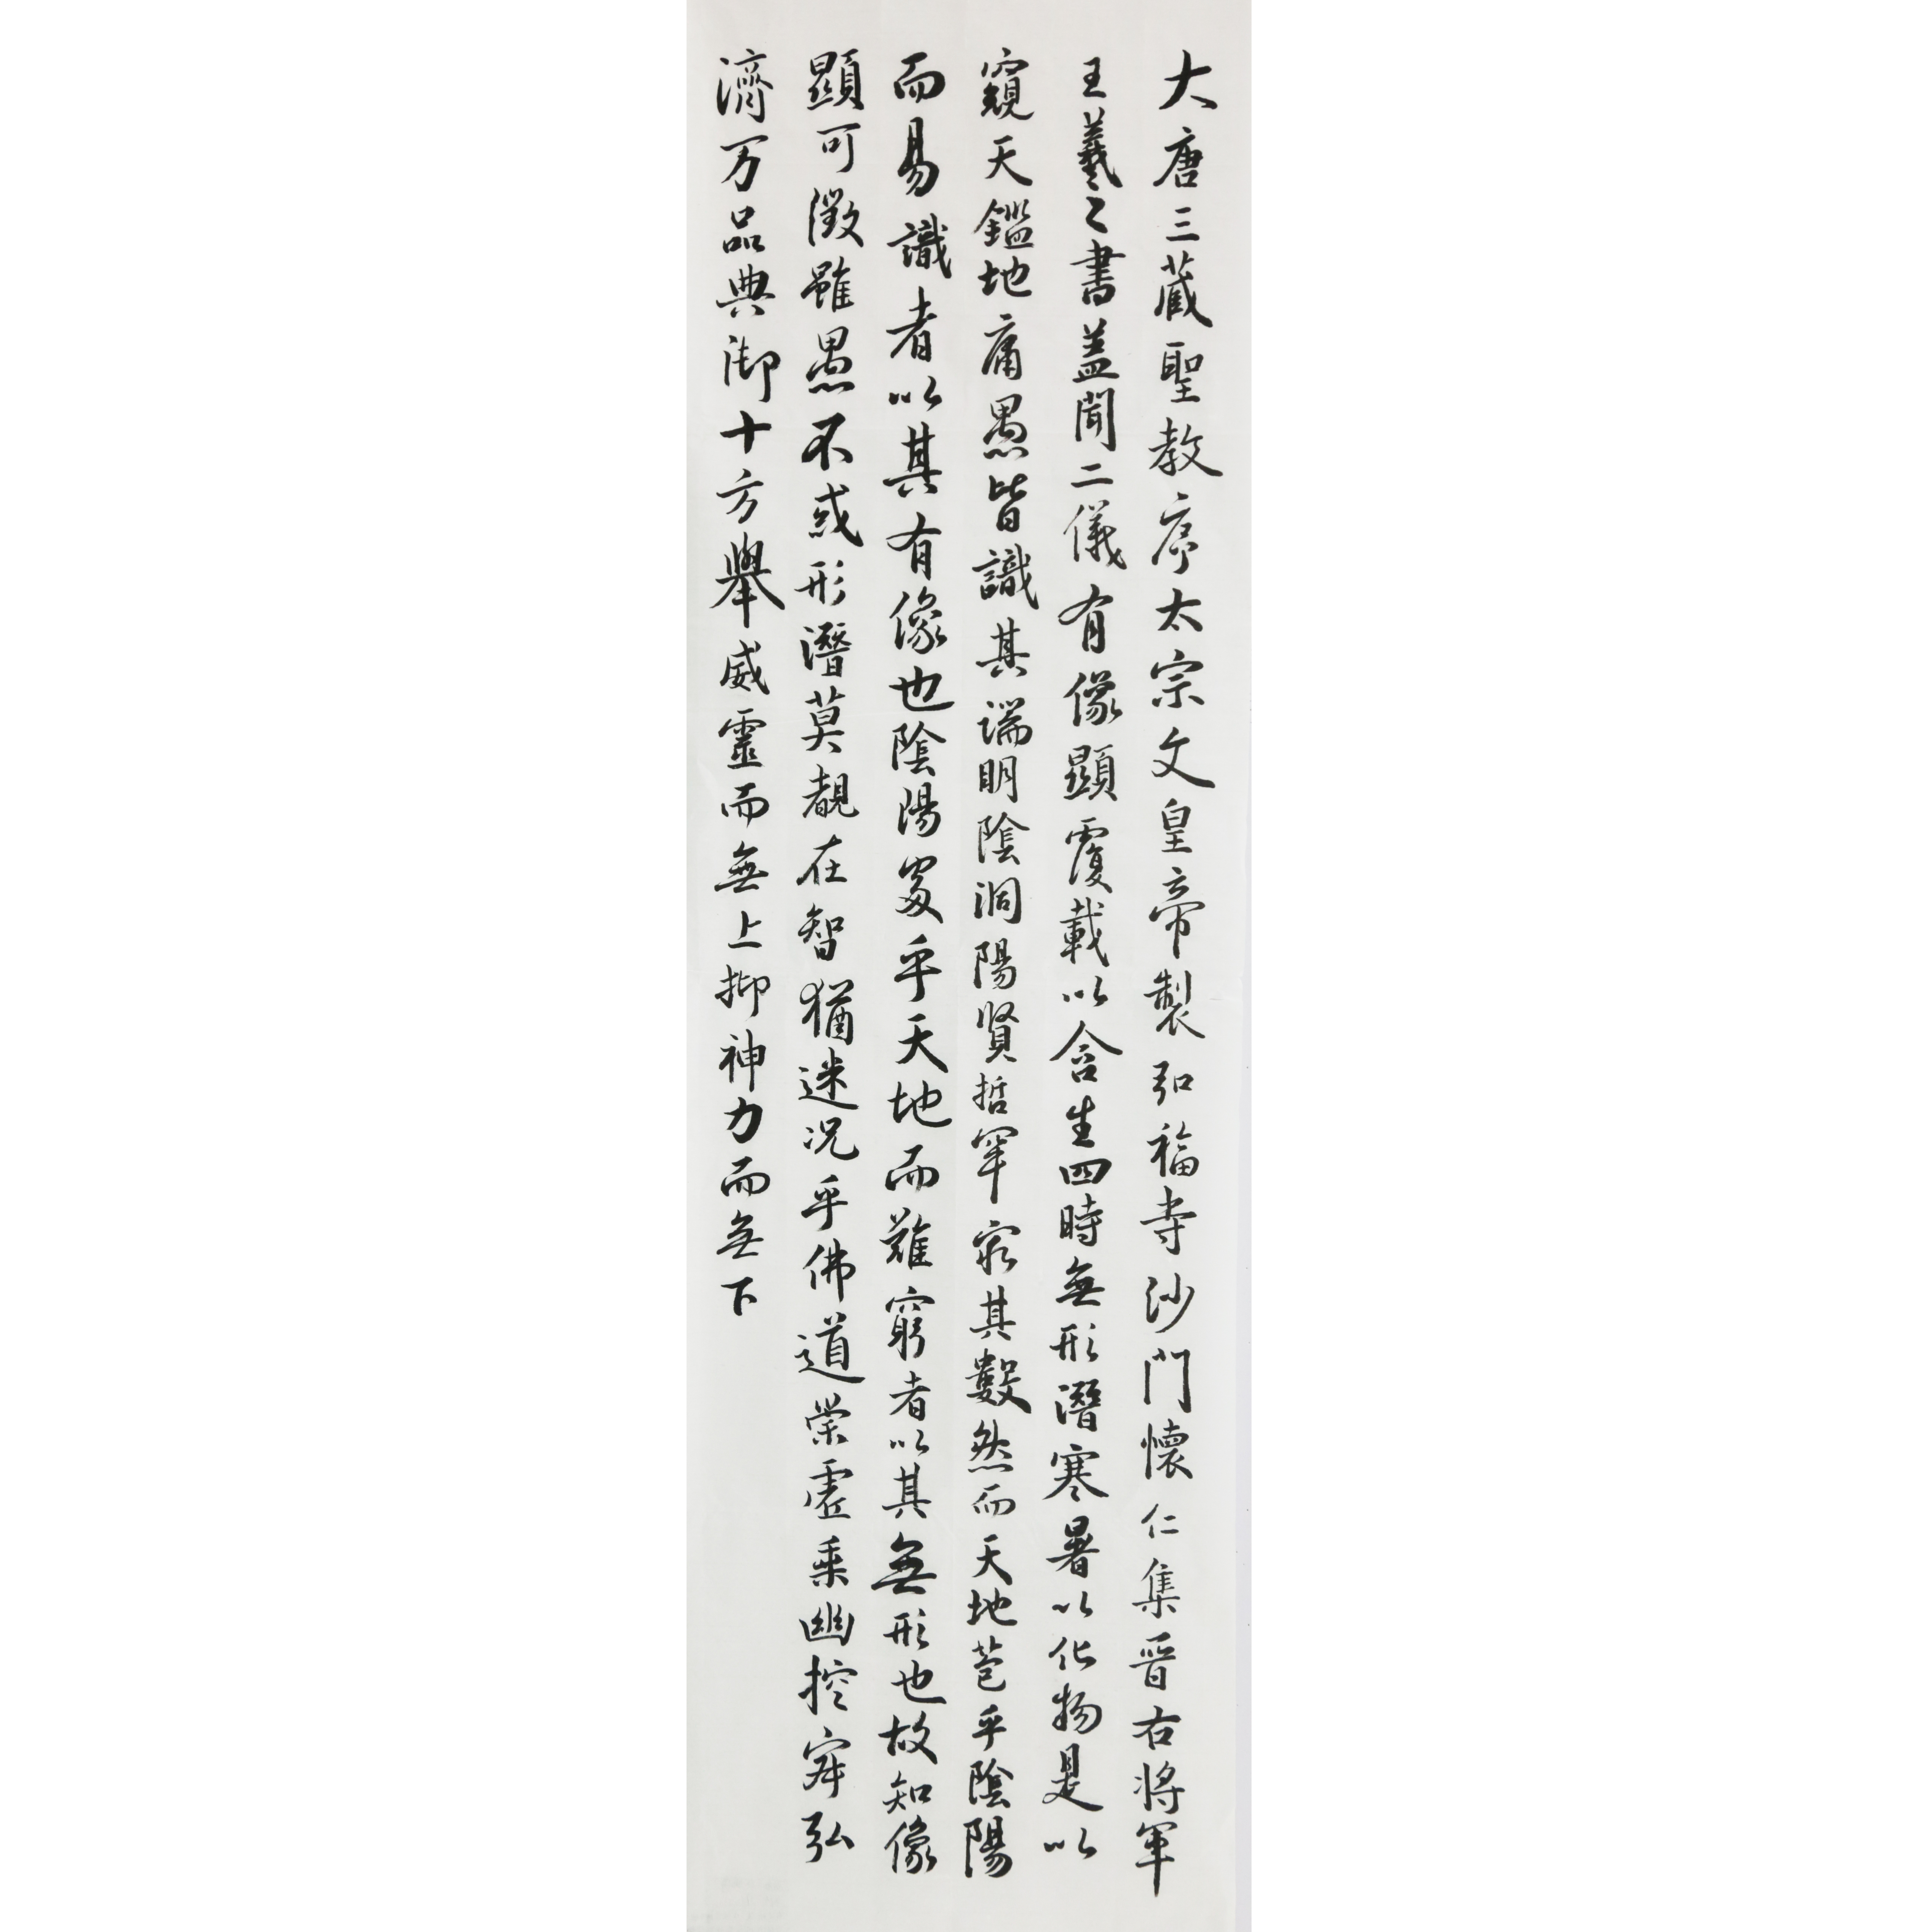 大唐三藏聖教序太宗文皇帝製弘福寺沙門懷仁集晉右將軍
王羲之書蓋聞二儀有像顯覆載以含生四時無形潛寒暑以化物是以
窺天鑑地庸愚皆識其端明陰洞陽賢哲罕窮其數然而天地苞乎陰陽
而易識者以其有像也陰陽處乎天地而難窮者以其無形也故知像
顯可徵雖愚不惑形潛莫覩在智猶迷況乎佛道崇虛乘幽控寂弘
濟万品典御十方舉威靈而無上抑神力而無下